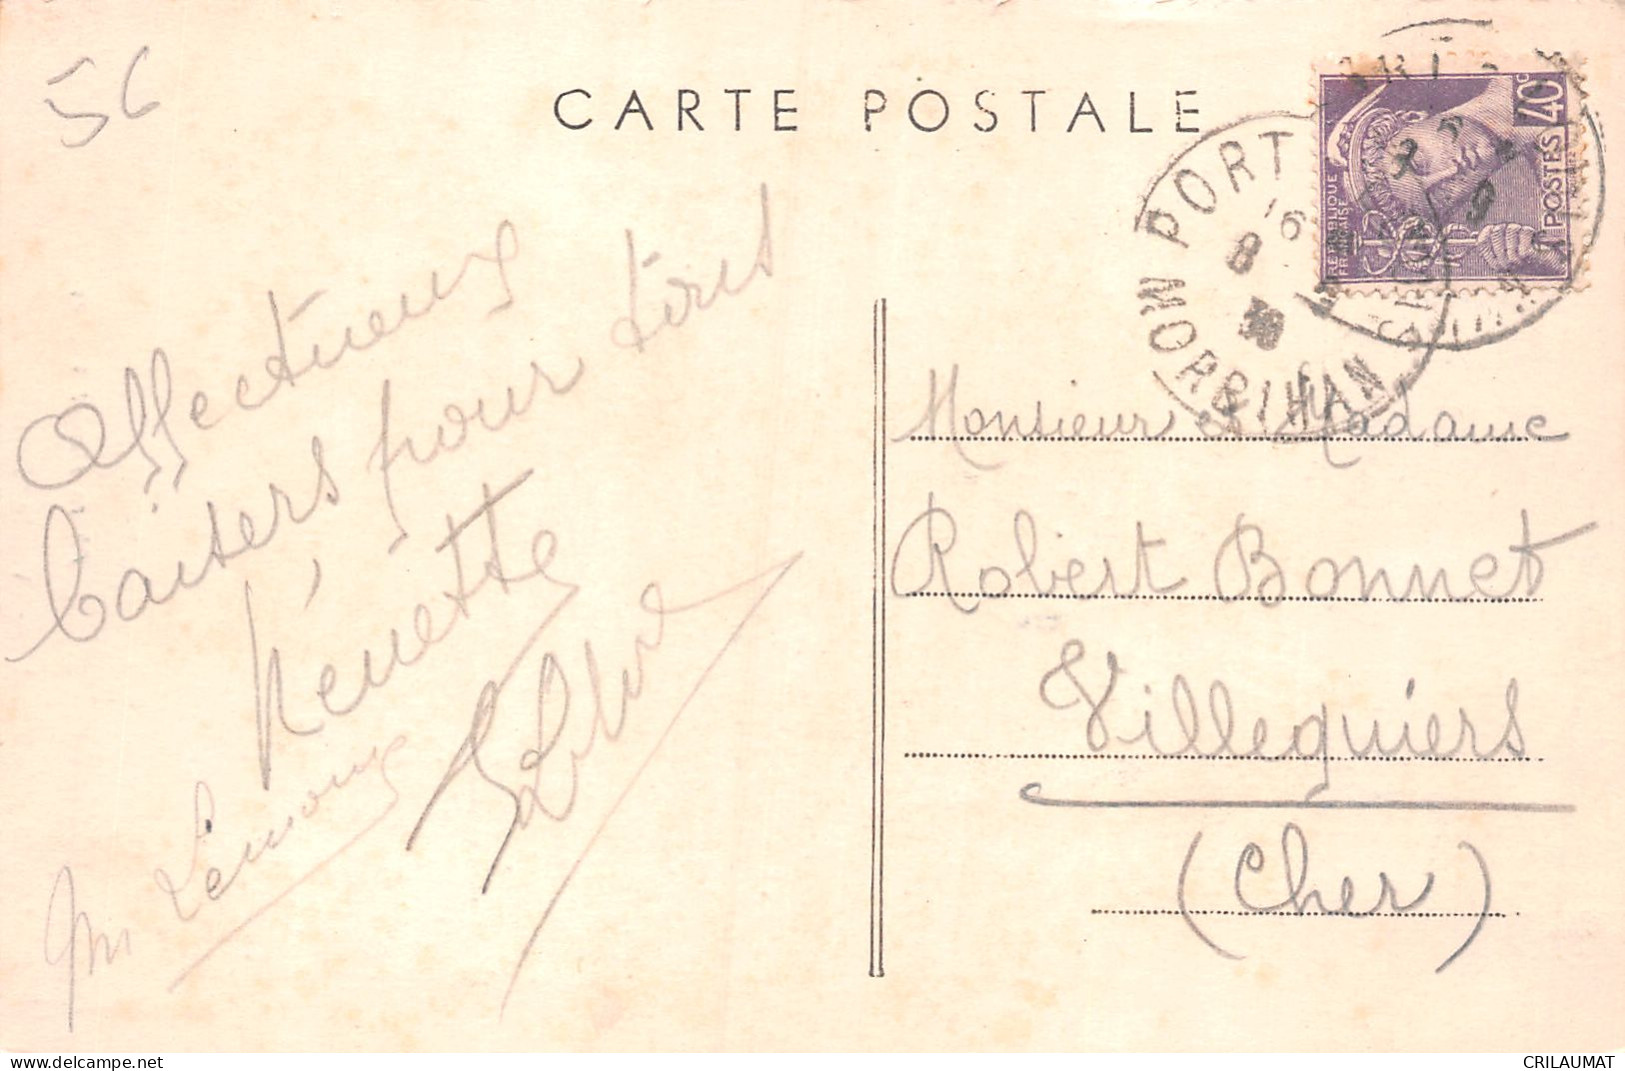 56
CARTE POSTALE
RÉPUBLIQUE
FRAISE
POSTES
40c
PORT
16
8
38
MORBIHAN
Affectueux
baisers pour tous
Nénette
M Lemoux
Monsieur Madame
Robert Bonnet
Villequiers
(Cher)
delcampe.net
CRILAUMAT